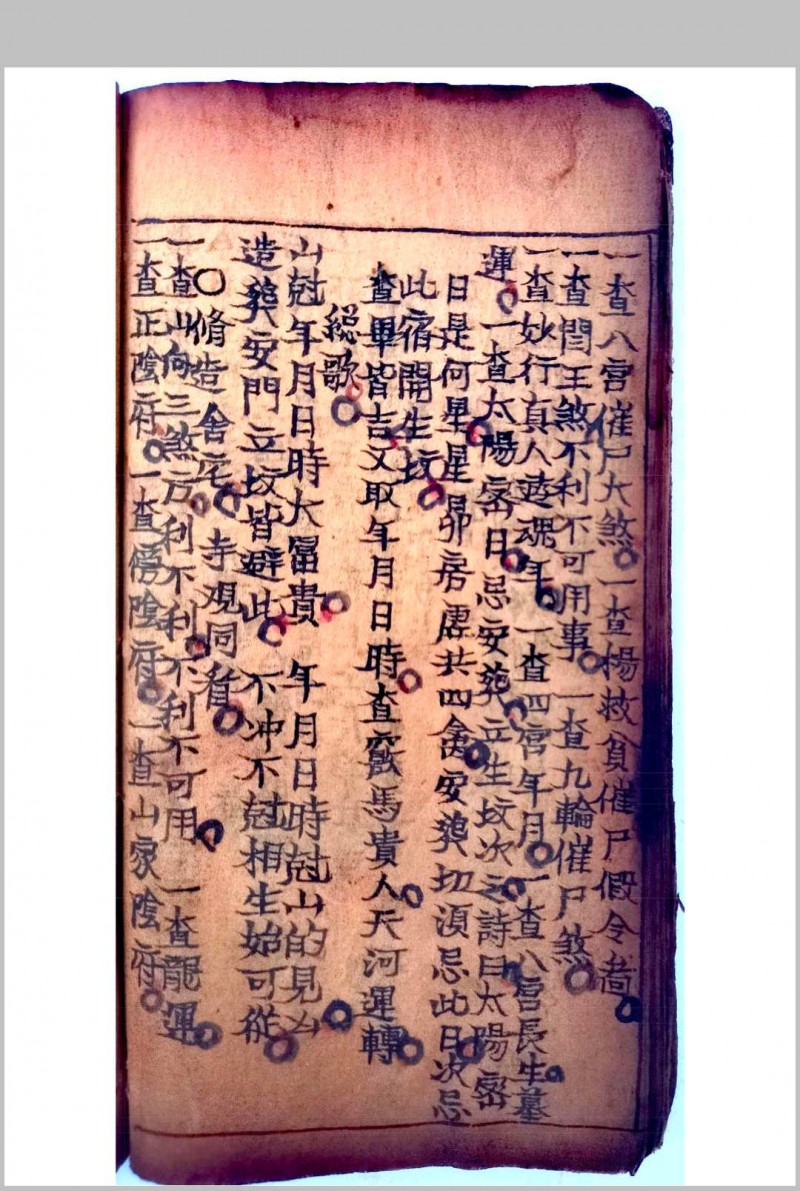 一查八宮催尸大煞○一查楊救貧催尸假令者○
一查閻王煞不利不可用事○一查九輪催尸煞○
一查妙行真人遊魂年○一查四宮年月○一查八宮長生墓
運○一查太陽密日○忌安葬立生坟次之詩曰太陽密
日是何星○星昴房虛共四禽○安葬切湏忌此日○次忌
此宿開生坟○
查畢皆吉又取年月日時○查竅馬貴人○天河運轉○
総歌○
山尅年月日時大富貴○年月日時尅山的見凶○
造葬安門立坟皆避此○不冲不尅相生始可從○
○脩造舍宅○寺观同看○
一查山向三煞方○利不利○不利不可用○一查龍運○
一查正陰府○一查傍陰府○一查山家陰府○